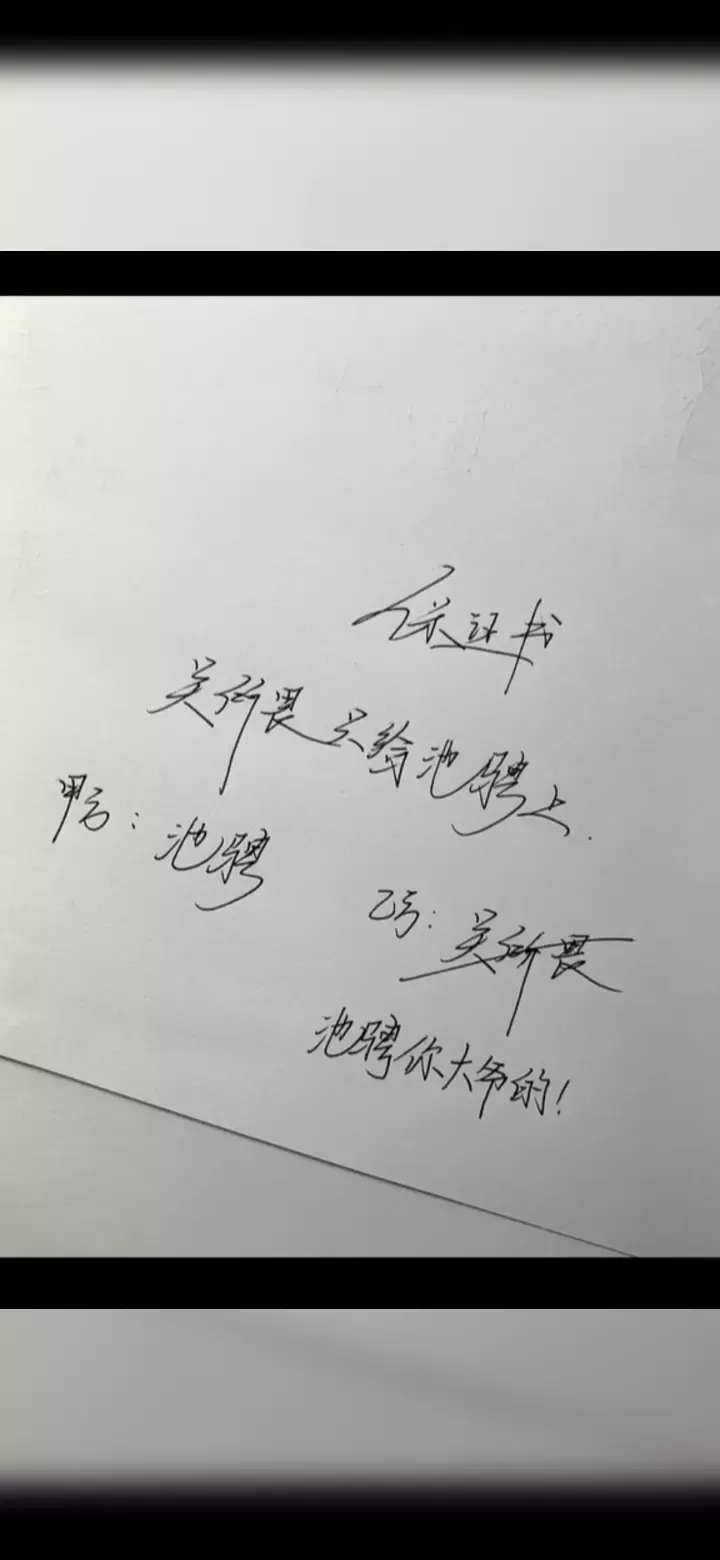 保证书
吴所畏只给池骋上.
甲方：池骋
乙方：吴所畏
池骋你大爷的！